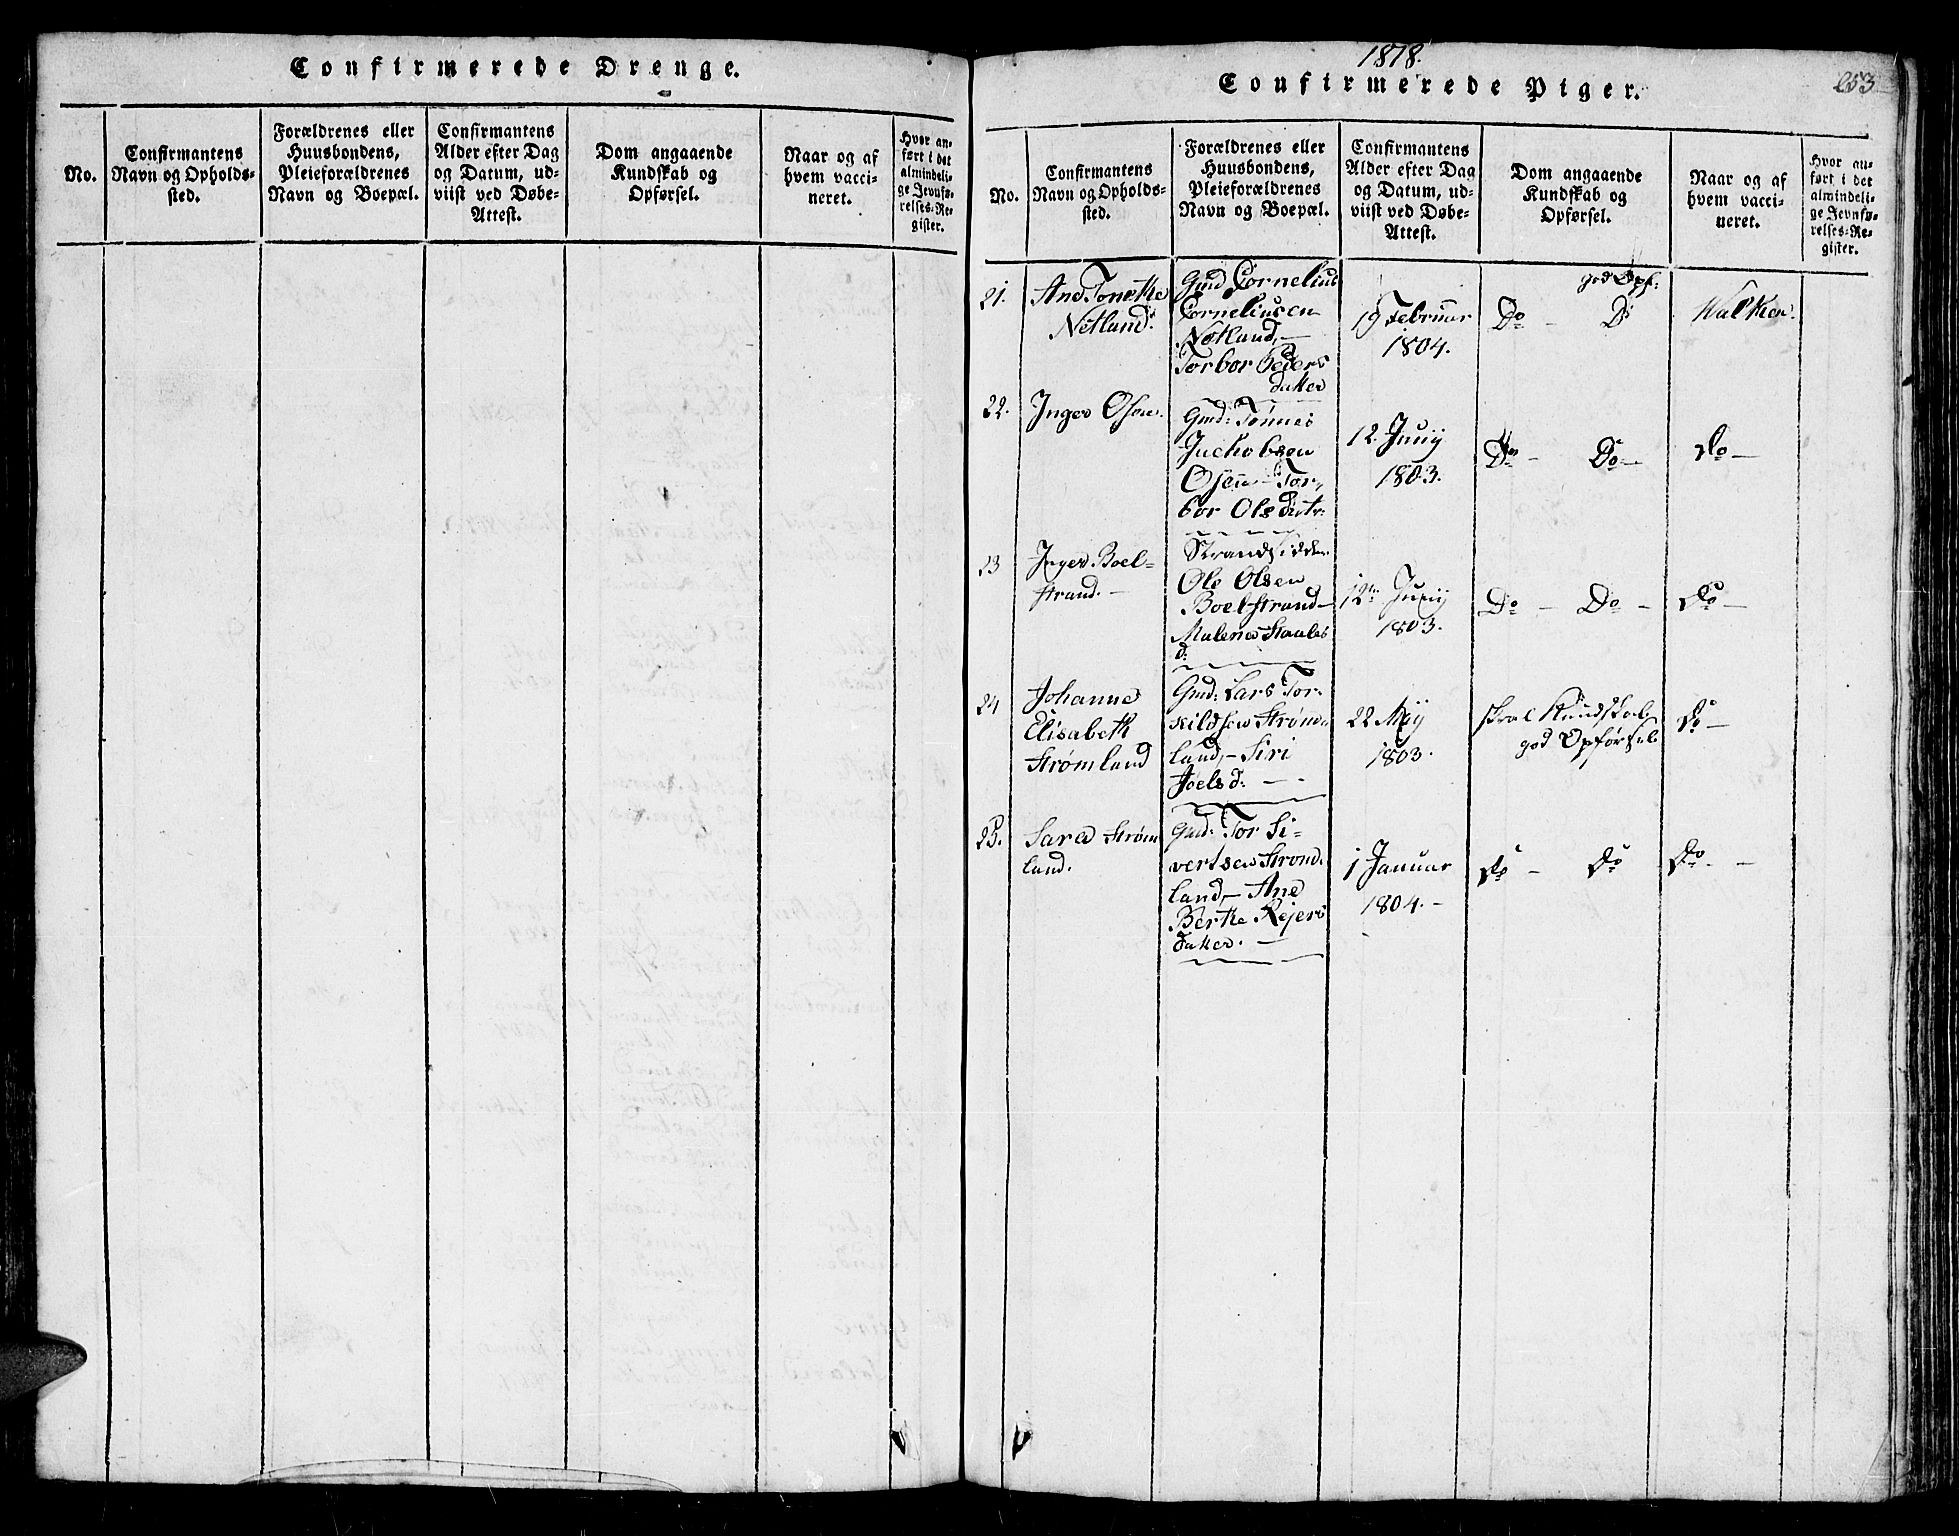 Confirmerede Drenge.
No.
Confirmantens
Navn og Opholds-
sted.
Forældrenes eller
Huusbondens,
Pleieforældrenes
Navn og Boepæl.
Confirmantens
Alder efter Dag
og Datum, ud-
viist ved Døbe-
Attest.
Dom angaaende
Kundskab og
Opførsel.
Naar og af
hvem vacci-
neret.
Hvor an-
ført i det
almindeli-
ge Jevnfø-
relses-Re-
gister.
1818.
253
Confirmerede Piger.
No.
Confirmantens
Navn og Opholds-
sted.
Forældrenes eller
Huusbondens,
Pleieforældrenes
Navn og Boepæl.
Confirmantens
Alder efter Dag
og Datum, ud-
viist ved Døbe-
Attest.
Dom angaaende
Kundskab og
Opførsel.
Naar og af
hvem vacci-
neret.
Hvor an-
ført i det
almindeli-
ge Jevnfø-
relses-Re-
gister.
21.
Ane Tonethe
Netland.
Gmd Cornelius
Corneliusen
Netland, —
Torbor Peders
datter
19 Februar
1804.
god Opf:
Do — Do
Walken.
22.
Inger Osen.
Gmd: Tønnes
Jachobsen
Osen — Tor-
bor Ols datr:
12. Junij
1803.
Do — Do —
Do —
23
Inger Boel-
strand. —
Strandsidder
Ole Olsen
Boelstrand —
Malene Staales
d:
12te Junij
1803.
Do — Do —
Do —
24
Johanne
Elisabeth
Strømland
Gmd: Lars Tor-
kildsen Strøm-
land, — Siri
Joels d: —
22 Maij
1803.
skral Kundskab
god Opførsel
Do —
25.
Sara Strøm
land.
Gmd: Tor Si-
vertsen Strom-
land, — Ane
Berthe Rejers
datter. —
1 Januar
1804. —
Do — Do
Do. —